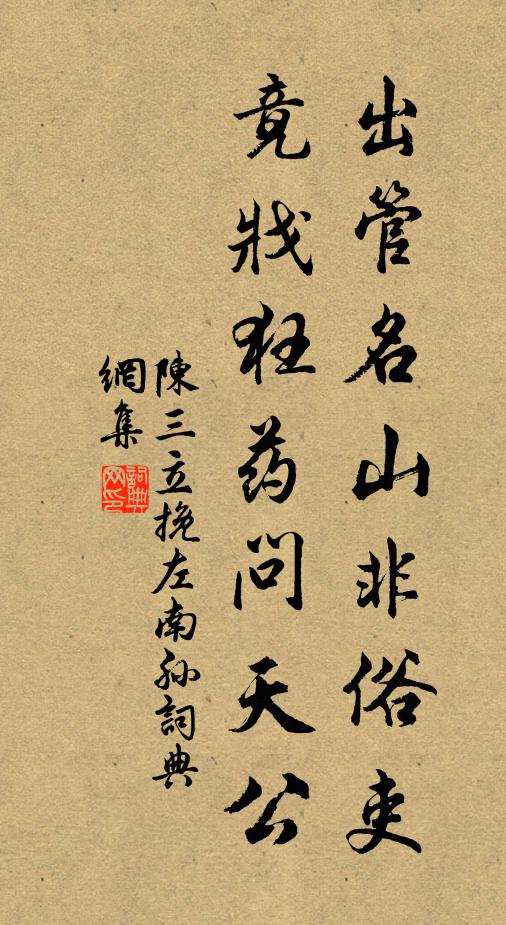 出管名山非俗吏
竟戕狂药问天公
陳三立挽左南孙詞典
網集
詞典
网印